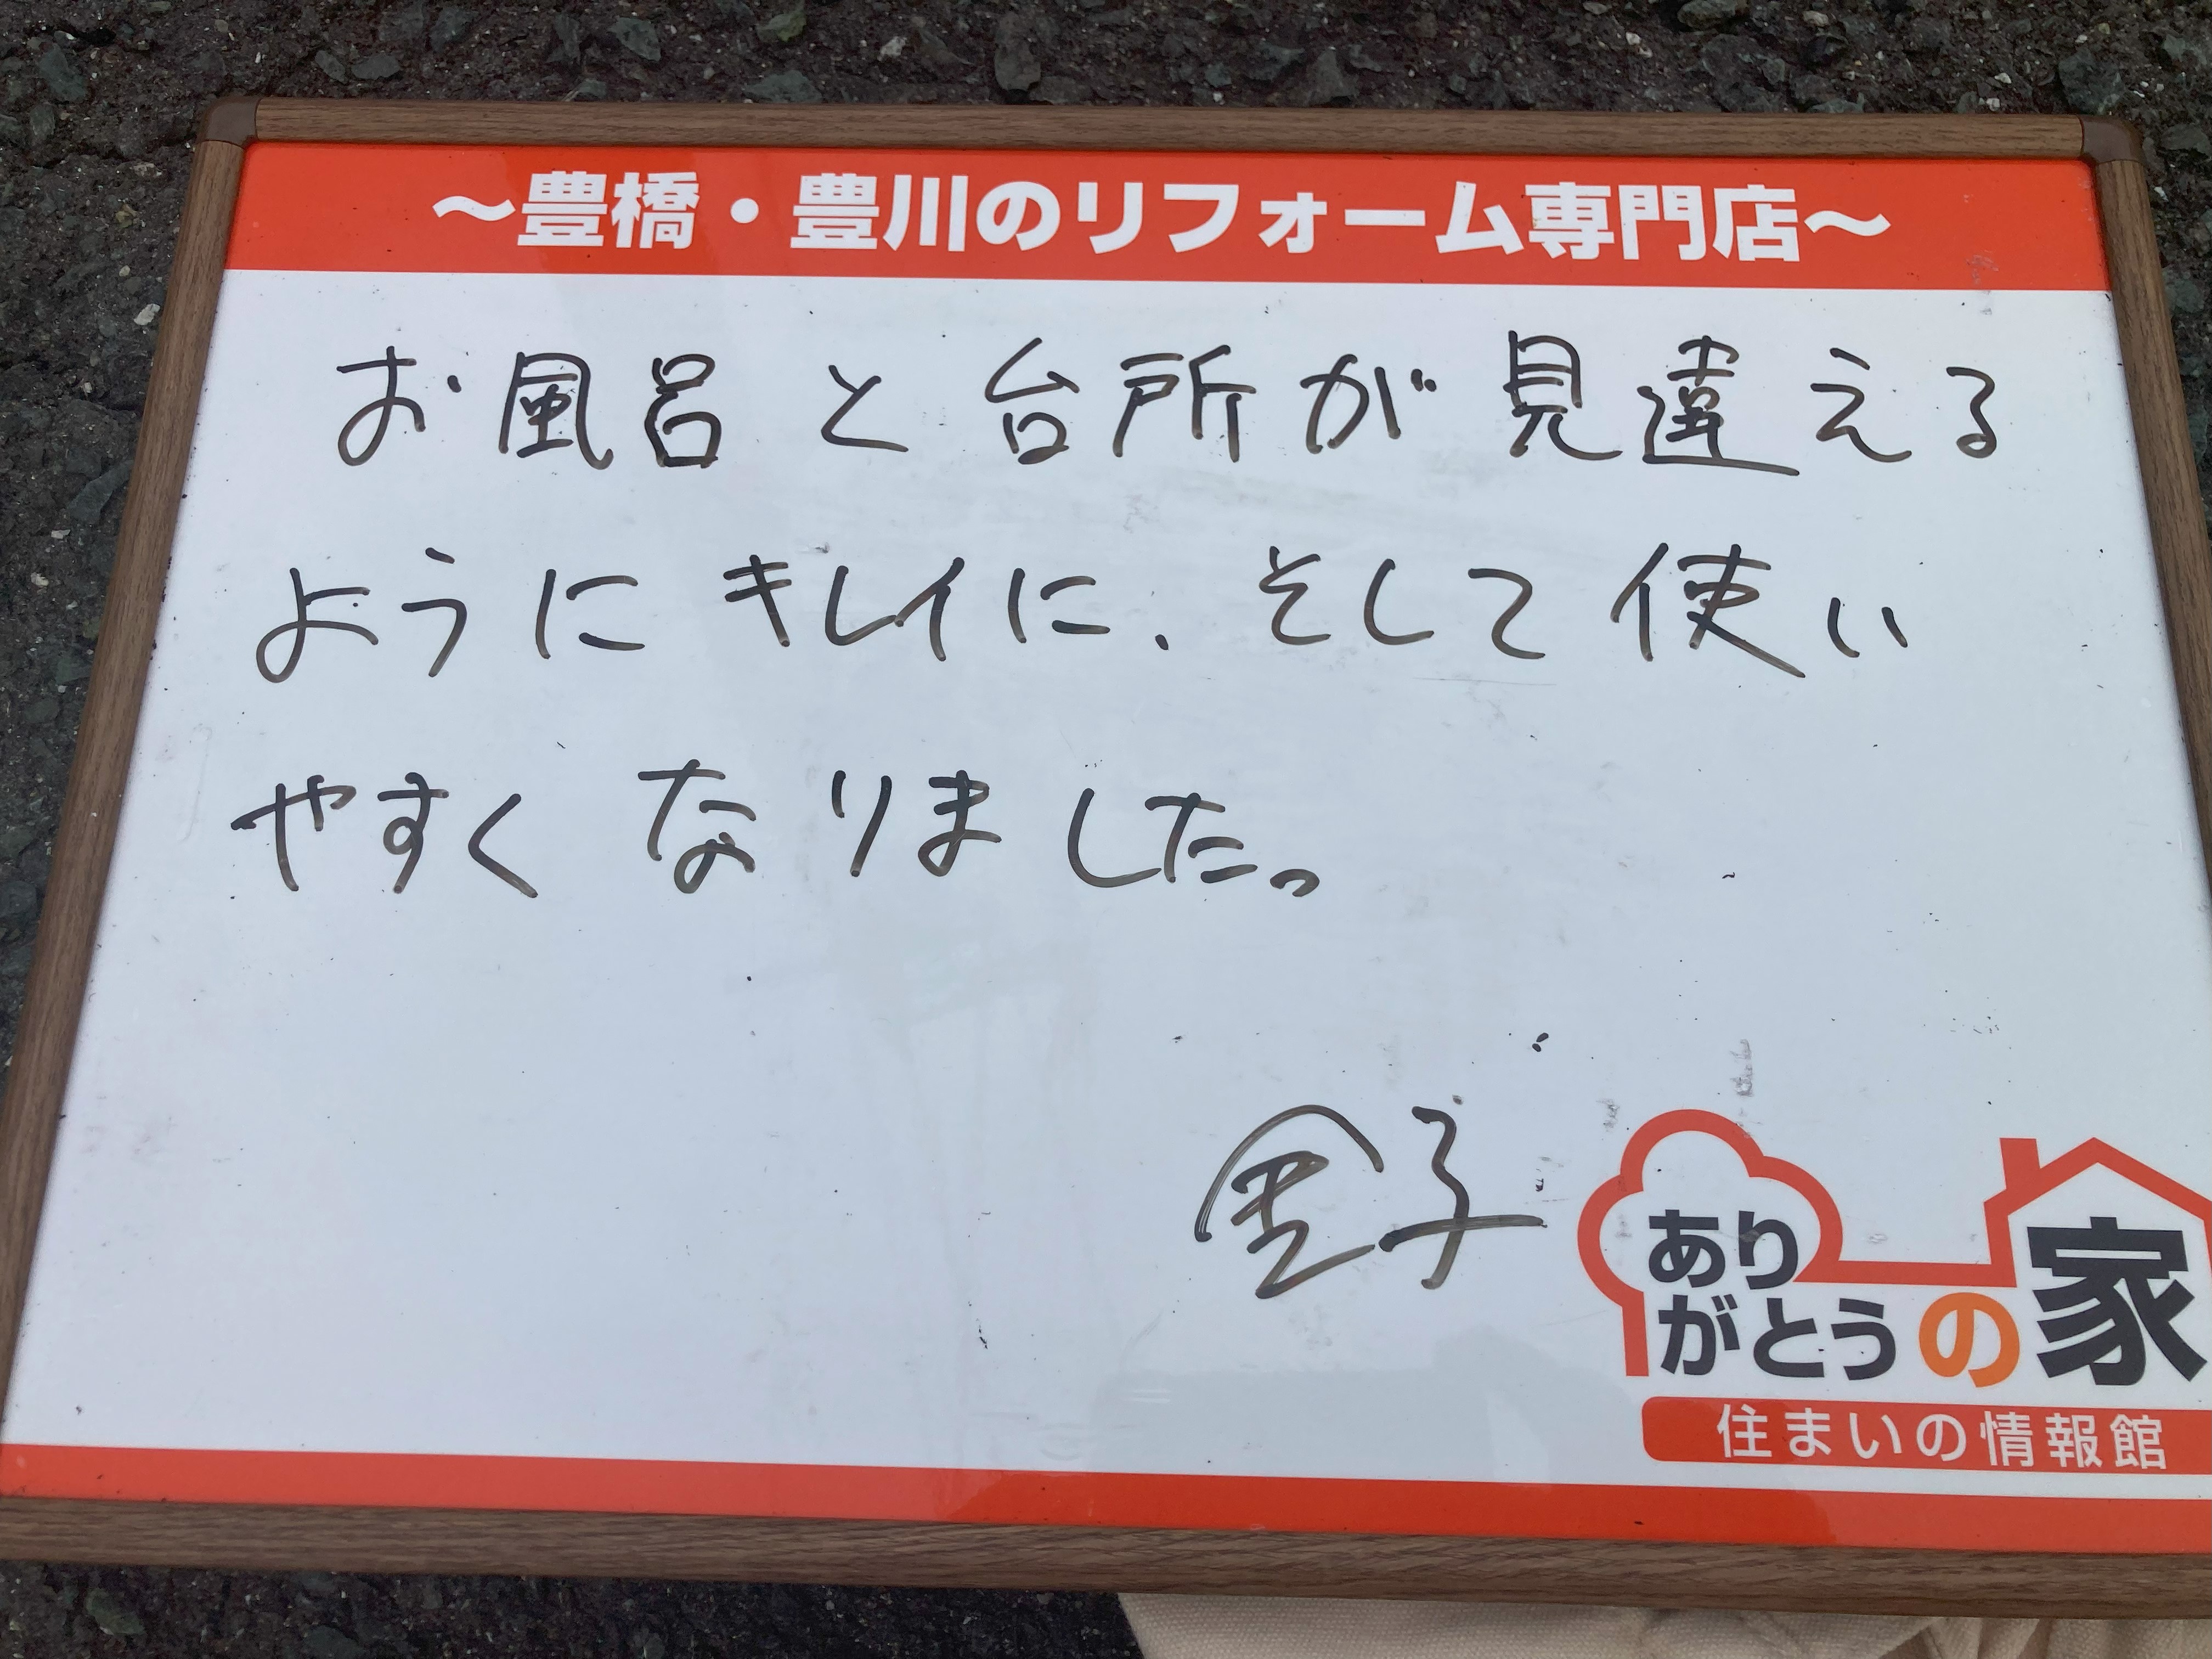 ～豊橋・豊川のリフォーム専門店～
お風呂と台所が見違える
ようにキレイに、そして使い
やすくなりました。
あり
がとうの家
住まいの情報館